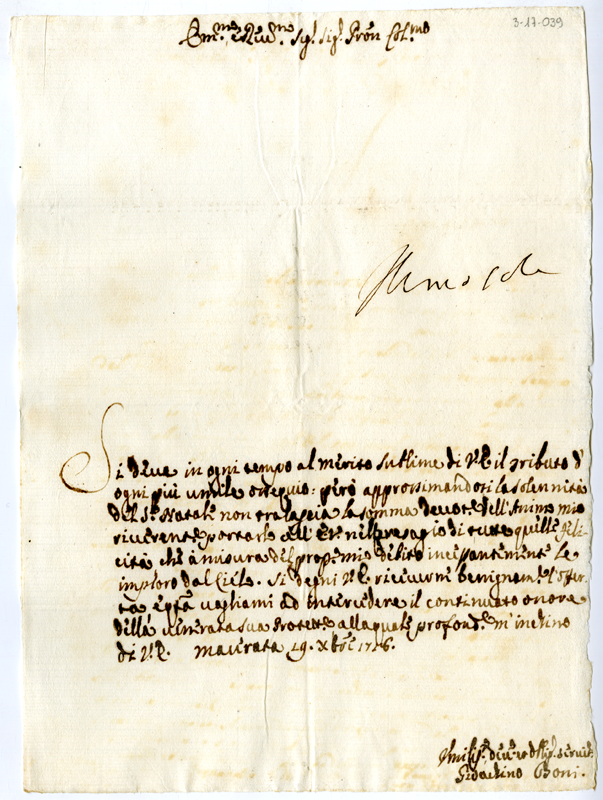 3-17-039
Em.mo e Rev.mo Sig.r Sig.r Pron Col.mo
Si deve in ogni tempo al merito sublime di V.E. il tributo d'
ogni più umile ossequio: però approssimandosi la solennità
del S.to Natale non tralascia la somma devote dell'Animo mio
riverente portarle nell'
presagio di tutte quelle Feli-
cità che à misura del prop.o mio debito incessantemente le
imploro dal Cielo. Si degni V.E. ricevermi benignam.te l'offer-
ta
vagliami ad intercedere il continuato onore
della venerata sua Protett.e alla quale profond.e m'inchino
di V.E. Macerata 19. Xbre 1716.
Umiliss.o div.o ed obl.o servit.e
Gioachino Boni.